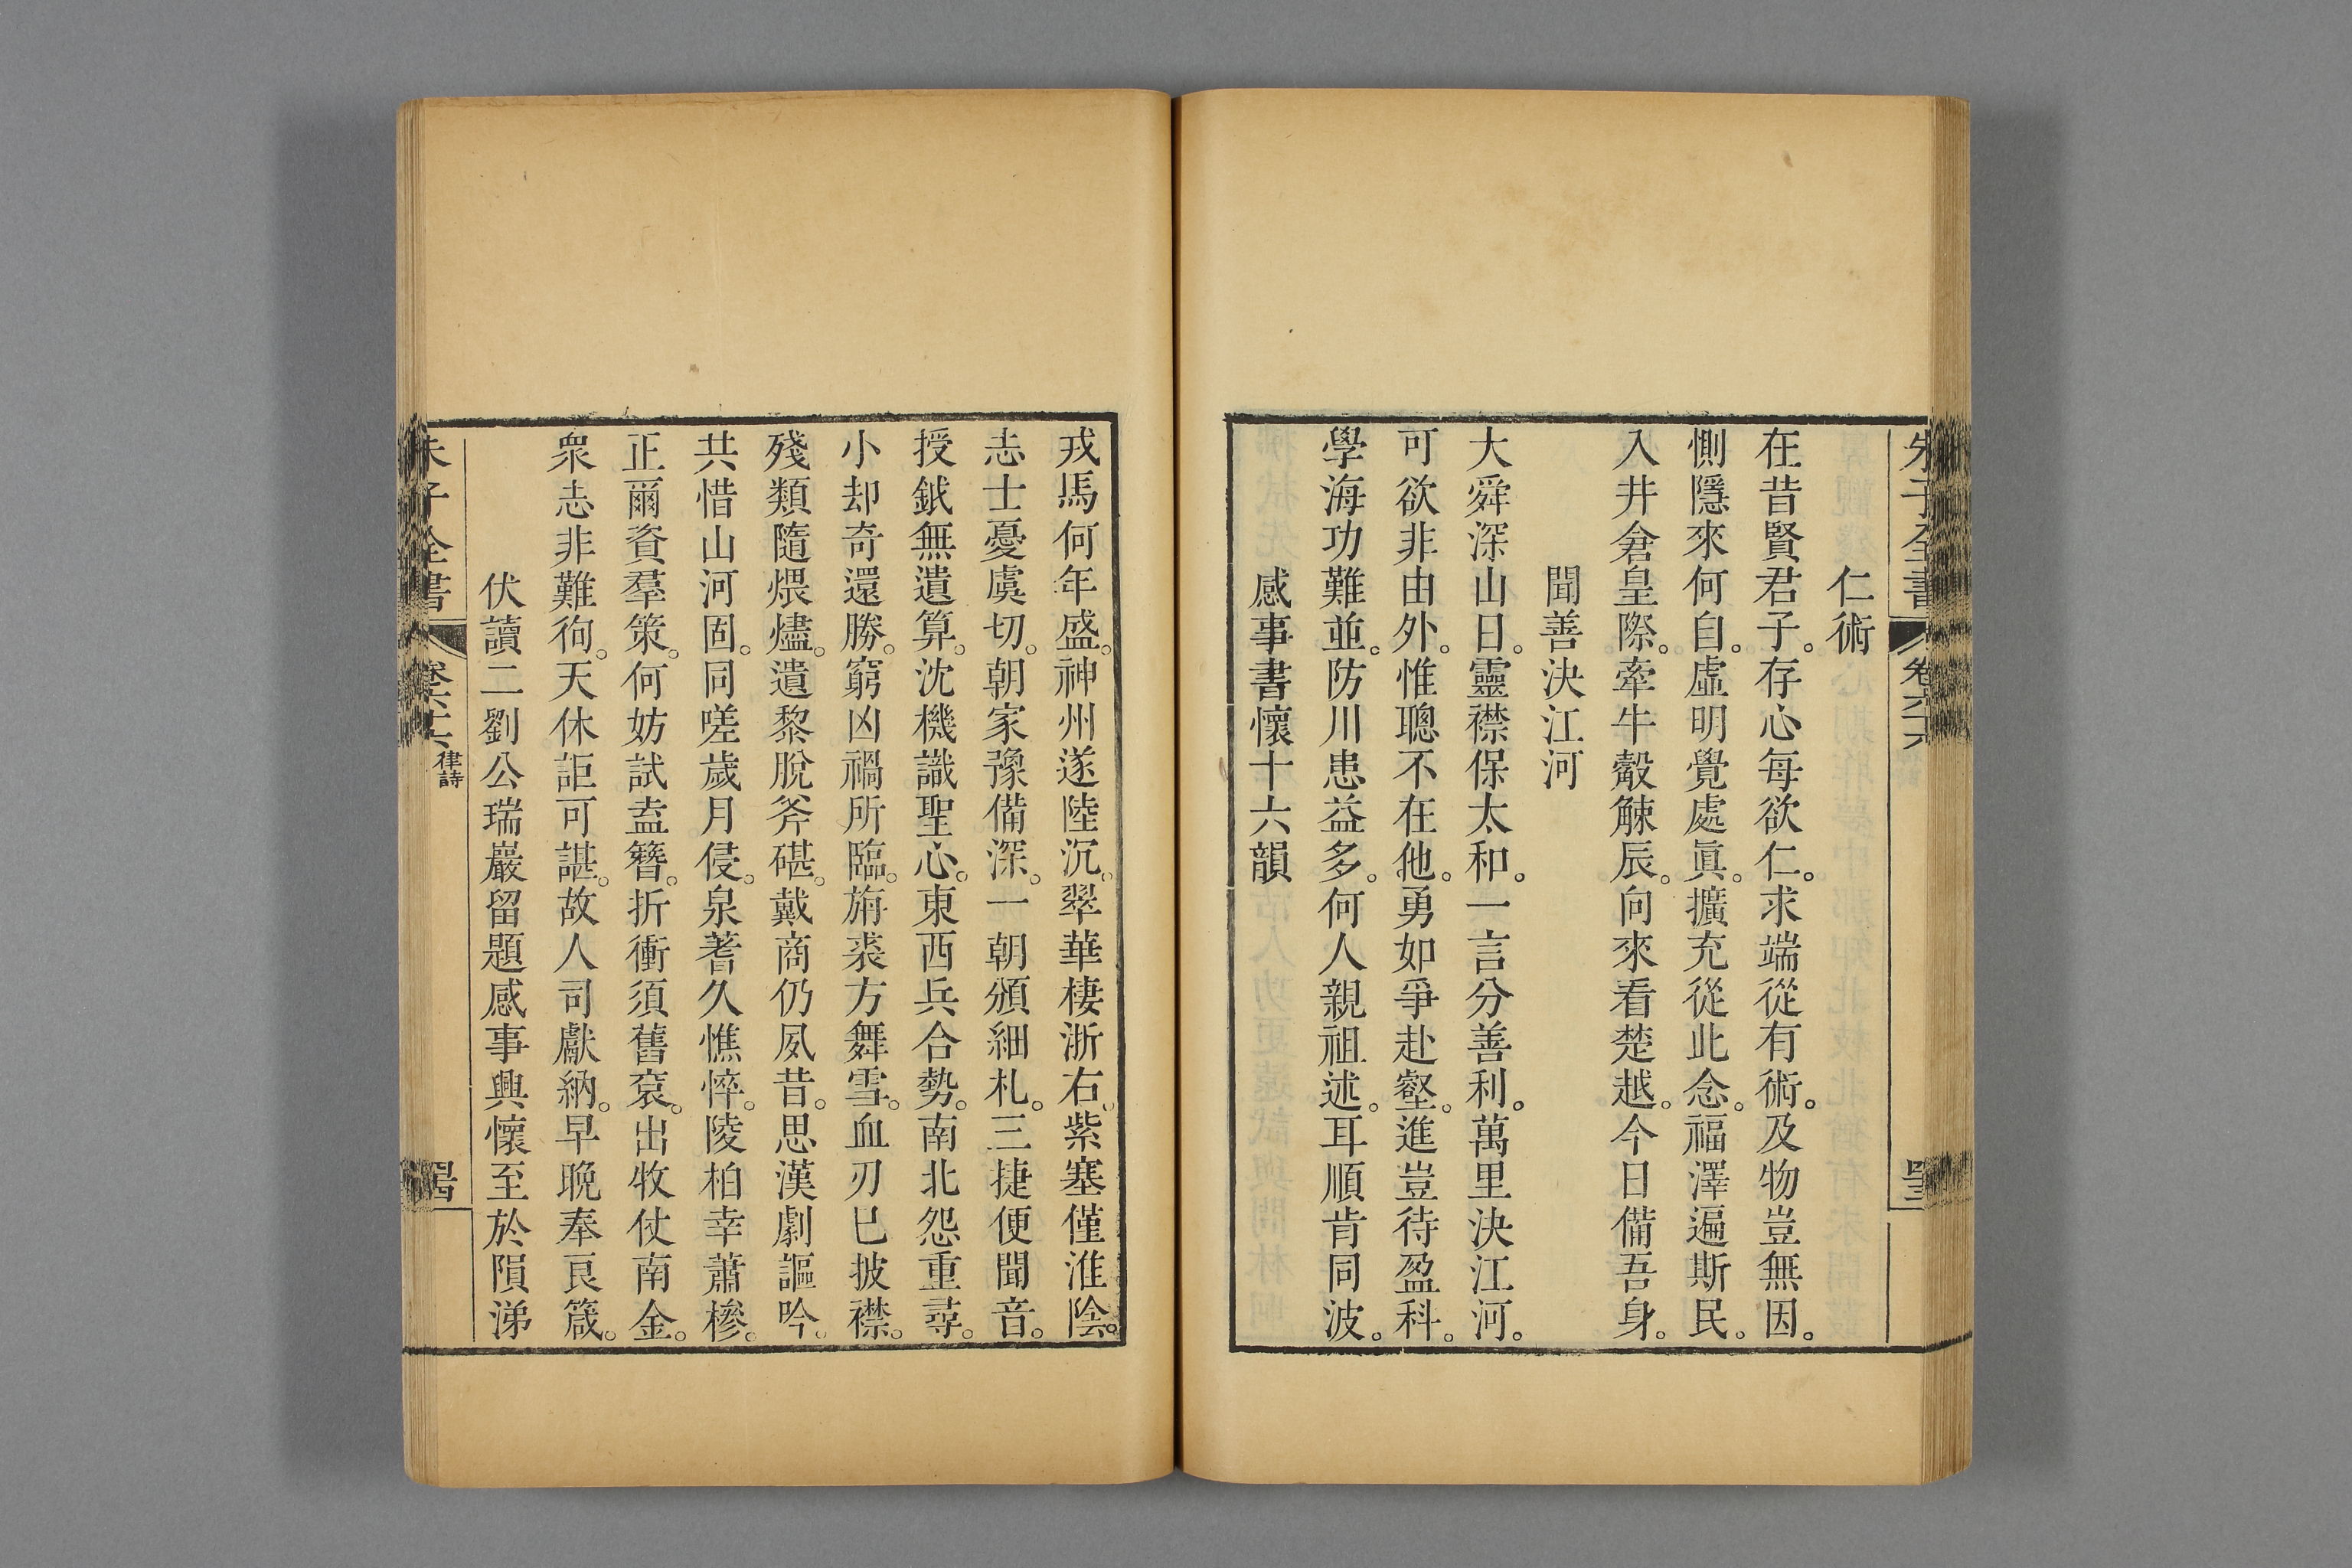 朱子全書 卷六十六
仁術
在昔賢君子。存心每欲仁。求端從有術。及物豈無因。
惻隱來何自。虛明覺處眞。擴充從此念。福澤遍斯民。
入井倉皇際。牽牛觳觫辰。向來看楚越。今日備吾身。
聞善決江河
大舜深山日。靈襟保太和。一言分善利。萬里決江河。
可欲非由外。惟聰不在他。勇如爭赴壑。進豈待盈科。
學海功難並。防川患益多。何人親祖述。耳順肯同波。
感事書懷十六韻
戎馬何年盛。神州遂陸沉。翠華棲浙右。紫塞僅淮陰。
志士憂虞切。朝家豫備深。一朝頒細札。三捷便聞音。
授鉞無遺算。沈機識聖心。東西兵合勢。南北怨重尋。
小却奇還勝。窮凶禍所臨。旃裘方舞雪。血刃巳披襟。
殘類隨煨燼。遺黎脫斧碪。戴商仍夙昔。思漢劇謳吟。
共惜山河固。同嗟歲月侵。泉蓍久憔悴。陵柏幸蕭槮。
正爾資羣策。何妨試盍簪。折衝須舊袞。出牧仗南金。
衆志非難徇。天休詎可諶。故人司獻納。早晚奉良箴。
伏讀二劉公瑞巖留題感事興懷至於隕涕
朱子全書 卷六十六 律詩